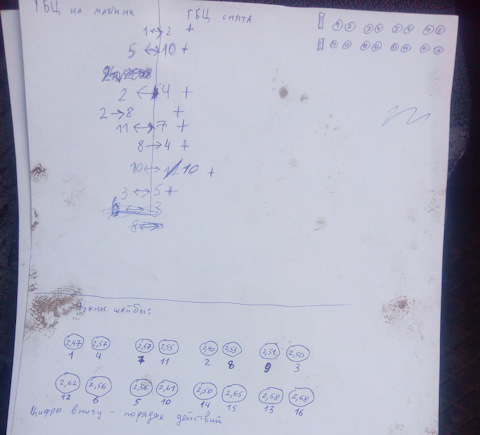 ГБЦ на машине ГБЦ снята
1 ↔ 2 +
5 ↔ 10 +
2 ↔ 4 +
2 → 8 +
11 ↔ 7 +
8 → 4 +
10 ↔ 10 +
3 ↔ 5 +
Нужны шайбы:
2,47 2,57 2,57 2,55 2,55 2,51 2,50
1 4 7 11 2 8 9 3
2,62 2,56 2,56 2,61 2,50 2,65 2,58 2,68
12 6 5 10 14 15 13 16
Цифры внизу - порядок действий